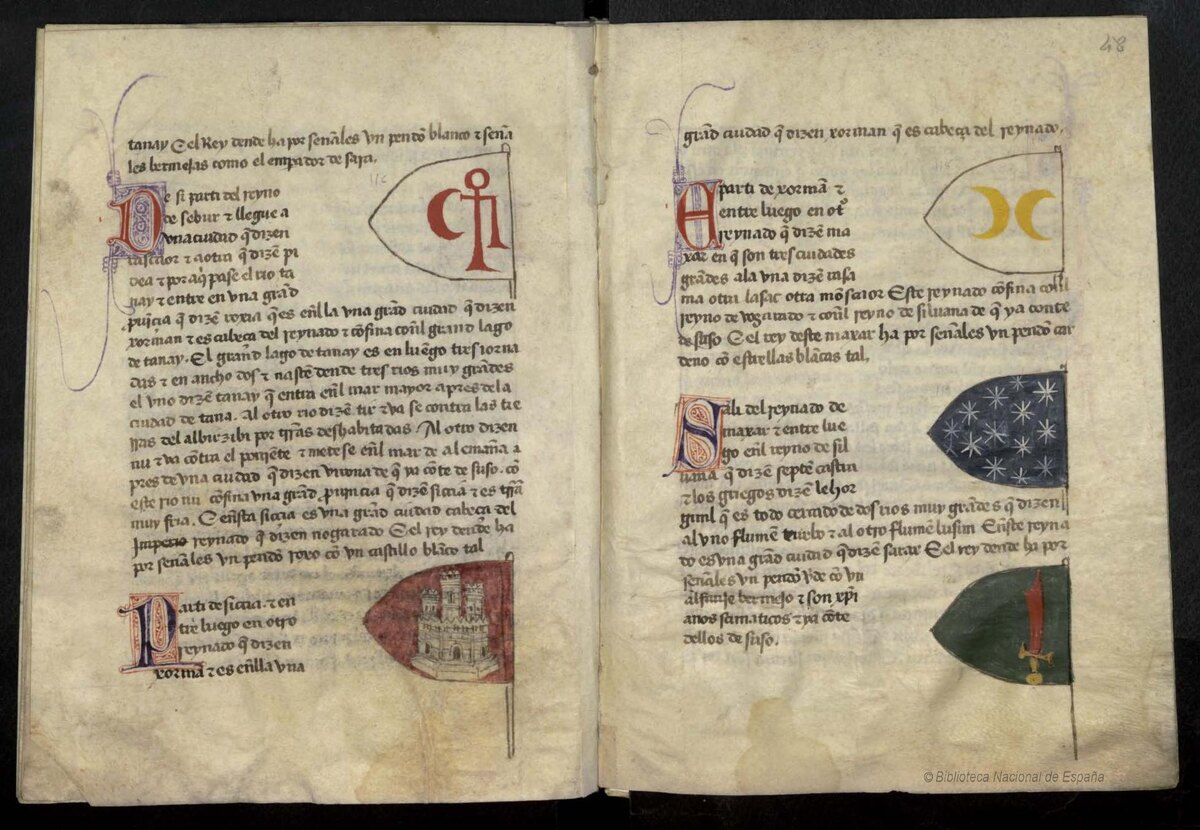 tanay E el Rey dende ha por señales vn pendõ blanco τ seña
les bermejas como el empador de sara.
De si parti del reyno
de sebur τ llegue a
vna ciudad q̃ dizen
τ aotra q̃ dizẽ pi
dea τ por aq̃ pase el rio ta
nay τ entre en vna grãd
puĩcia q̃ dizẽ roxia q̃ es enlla vna grãd ciudad q̃ dizen
xorman τ es cabeça del reynado τ cõfina conl grand lago
de tanay. El grand lago de tanay es en luẽgo tres iorna
das τ en ancho dos τ nasçẽ dende tres rios muy grandes
el vno dizen tanay q̃ entra enl mar mayor apres de la
ciudad de tana. Al otro rio dizẽ tir τ va se contra las tie
rras del albizibi por trr̃as deshabitadas Al otro dizen
nu τ va cõtra el ponjẽte τ metese enl mar de alemaña a
pres de vna ciudad q̃ dizen virona de q̃ ya cõte de suso. cõ
este rio nu cõfina vna grãd puĩncia q̃ dizẽ siccia τ es trr̃a
muy fria. E enesta siccia es vna grãd ciudad cabeça del
Imperio reynado q̃ dizen nogarado E el rey dende ha
por señales vn pendõ roxo cõ vn castillo blãco tal
Parti de siccia τ en
tre luego en otro
reynado q̃ dizen
xormã τ es enlla vna
48
grãd ciudad q̃ dizen xorman q̃ es cabeça del reynado.
E parti de xormã τ
entre luego en otº
reynado q̃ dizẽ ma
xar en q̃ son tres ciudades
grãdes ala vna dizẽ casa
ma otra lasac otra mõscaior Este reynado cõfina conl
reyno de τ conl reyno de siluana de q̃ ya conte
de suso E el rey deste maxar ha por señales vn pendõ car
deno cõ estrellas blãcas tal.
Sali del reynado de
maxar τ entre lue
go enl reyno de sil
uana q̃ dizẽ septẽ
τ los griegos dizẽ
q̃ es todo cercado de dos rios muy grãdes q̃ dizen
al vno flumẽ turbo τ al otro flumẽ lusim Eneste reyna
do es vna grãd ciudad q̃ dizẽ sarax E el rey dende ha por
señales vn pendõ vde cõ vn
alfanje bermejo τ son xp̃i
anos τ ya cõte
dellos de suso.
© Biblioteca Nacional de España